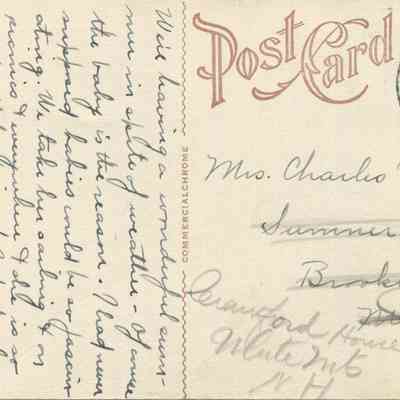 We're having a wonderful sum-
mer in spite of weather - Of course
the baby is the reason. I had never
supposed babies could be so fascin-
ating. We take her sailing & on
picnics & everywhere & she is so
COMMERCIALCHROME
Post Card
Mrs. Charles
Summer
Brookl
Crawford House
White Mts
N H